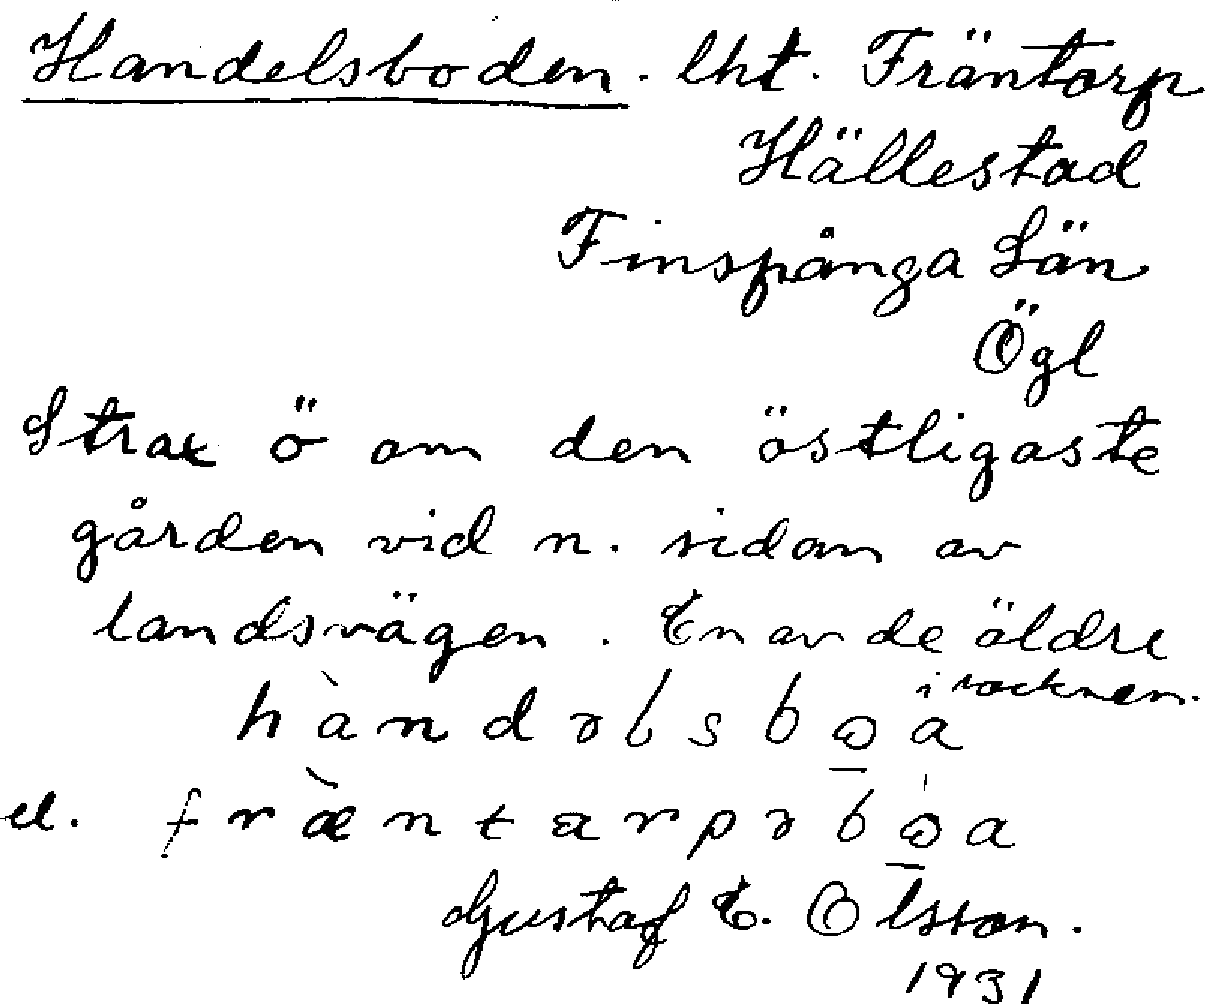 Handelsboden. lht. Fräntorp
Hällestad
Finspånga Län
Ögl
Strax ö om den östligaste
gården vid n. sidan av
landsvägen. En av de äldre
i socknen.
hàndəlsbωa
el. fræ̀ntarpəbωa
Gustaf E. Olsson.
1931